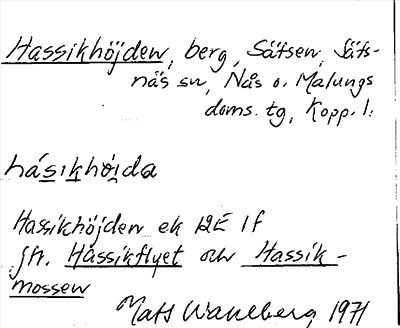 Hassikhöjden, berg, Sätsen, Säfs-
näs sn, Nås o. Malungs
doms. tg, Kopp. l.
hásikhöida
Hassikhöjden ek 12E 1f
jfr. Hassikflyet och Hassik-
mossen
Mats Wahlberg 1971